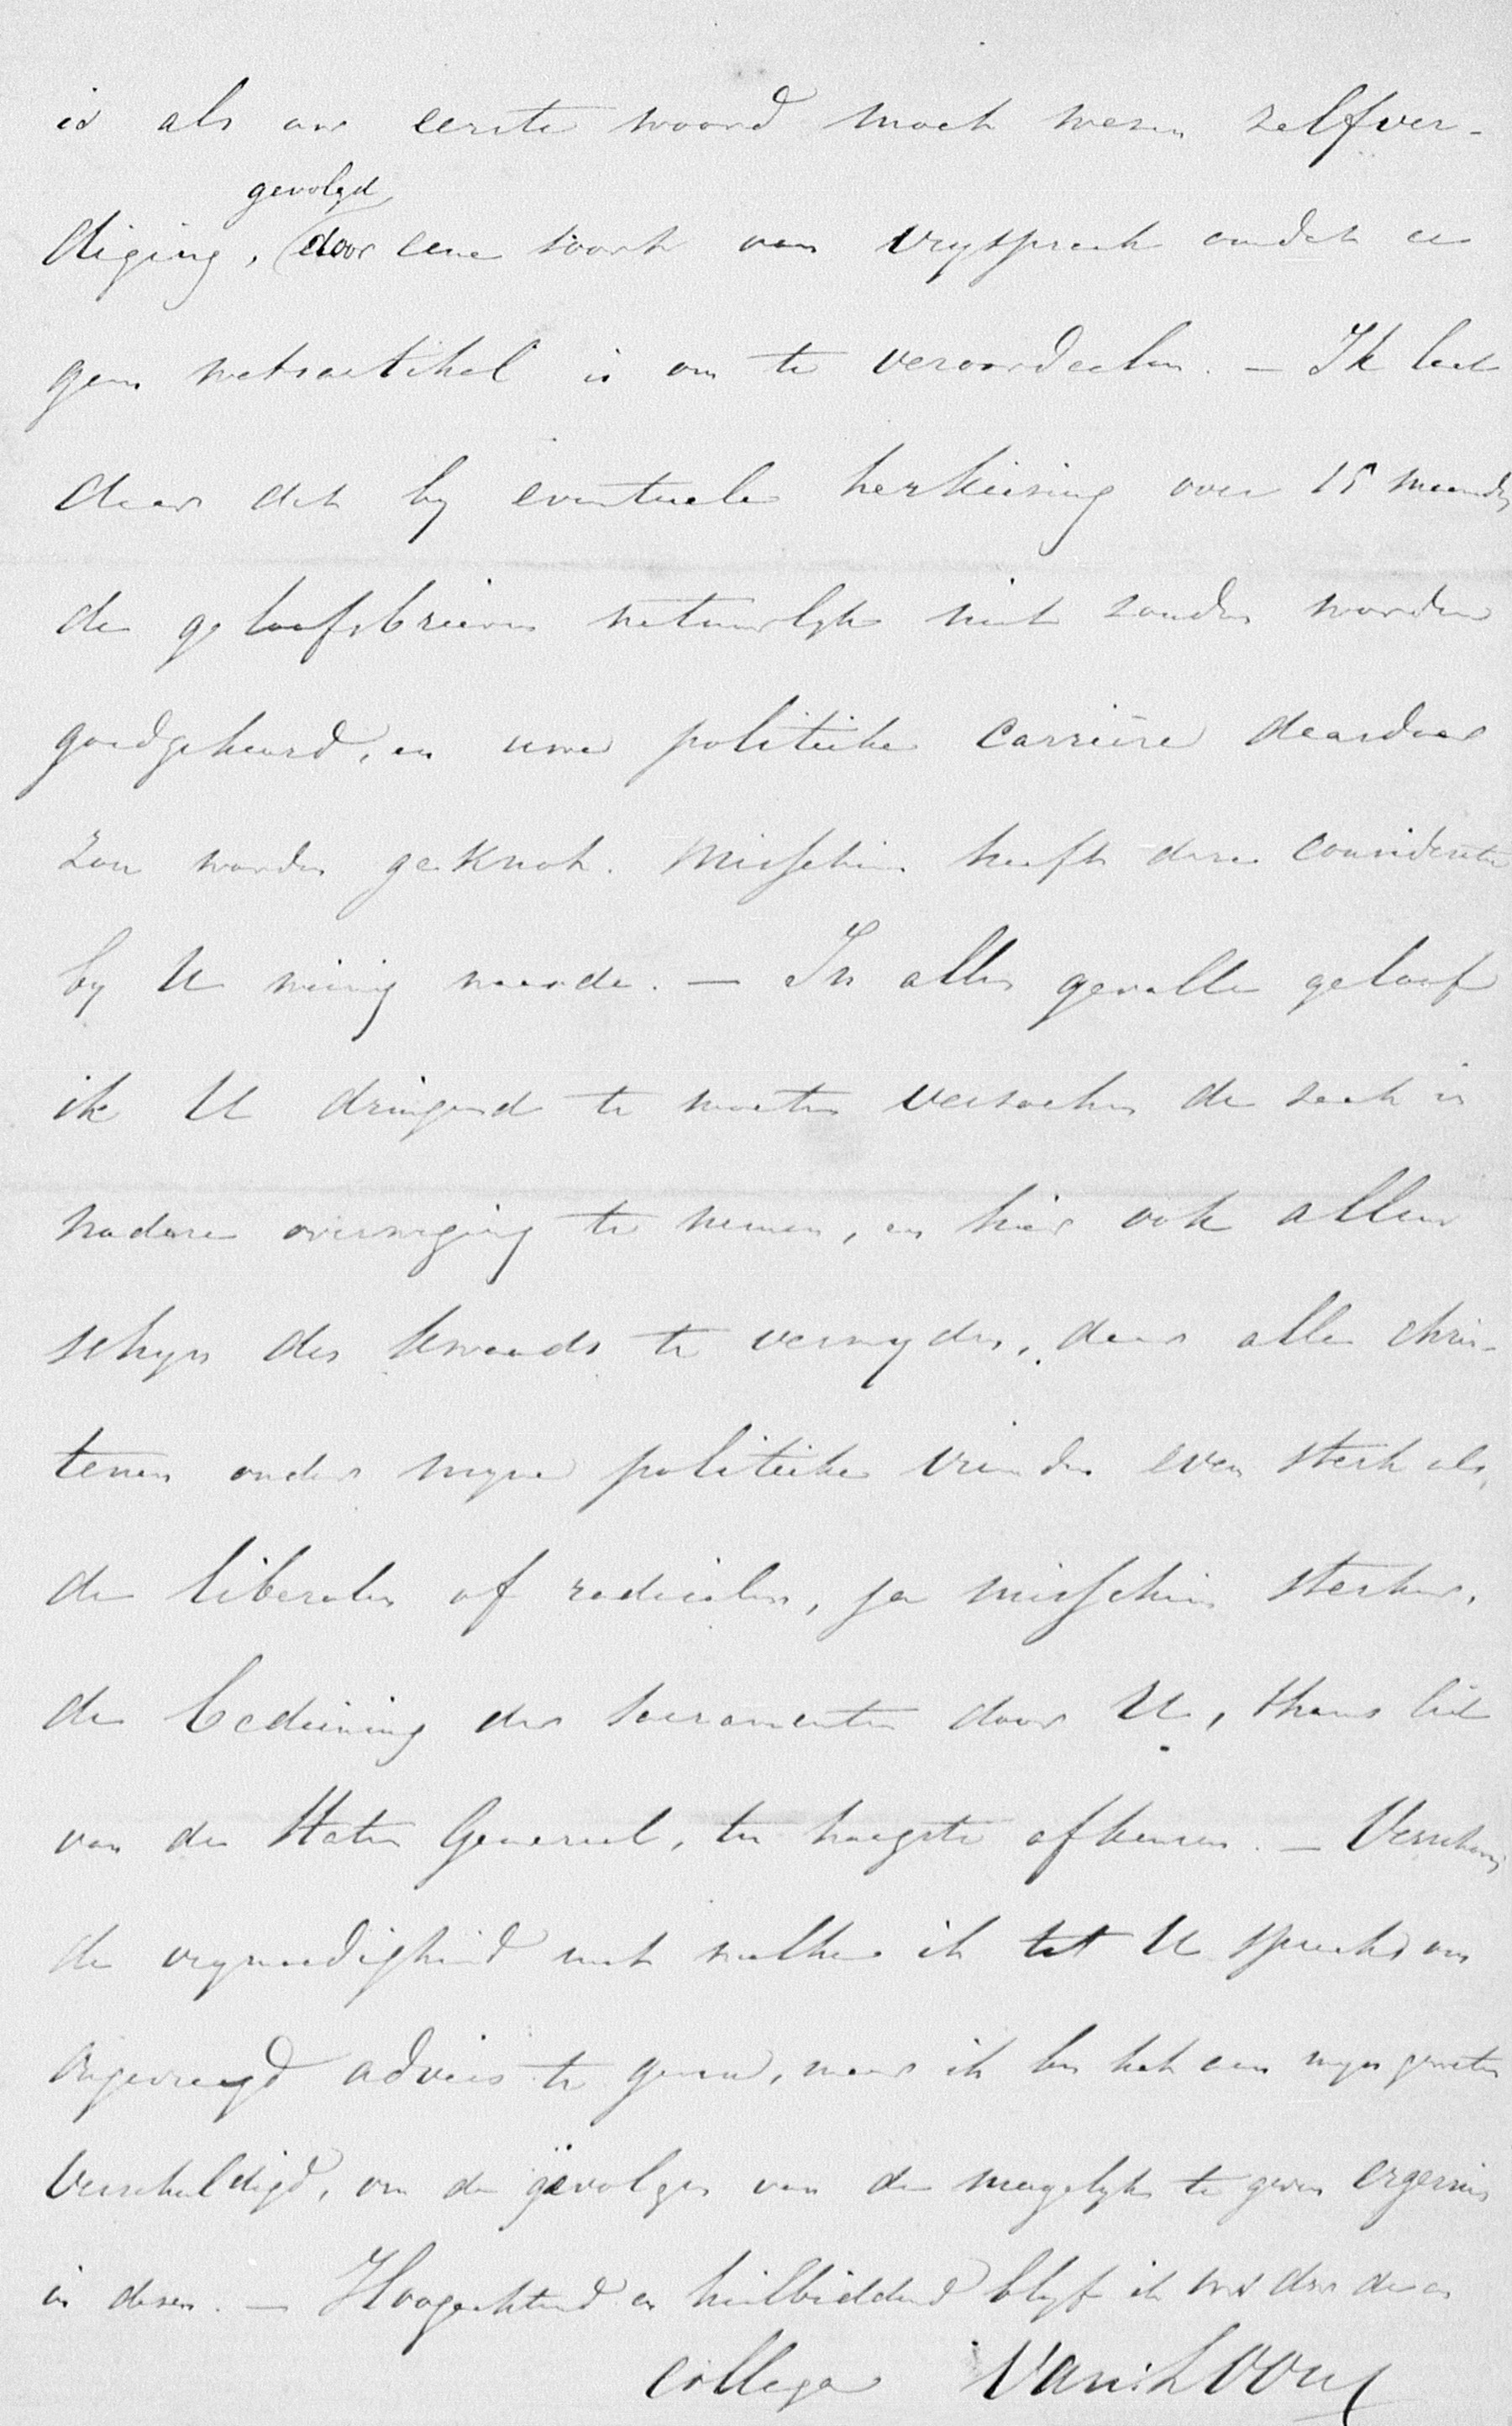 is als uw eerste woord moet wezen zelfver-
gevolgd
diging, door eene soort van vryspraak omdat er
geen wetsartikel is om te veroordeelen. — Ik laat
daar dat by eventuele herkiezing over 15 maanden
de geloofsbrieven natuurlyk niet zouden worden
goedgekeurd, en uwe politieke carrière daardoor
zou worden geknot. Misschien heeft deze consideratie
by U weinig waarde. — In allen gevalle geloof
ik U dringend te moeten verzoeken de zaak in
nadere overweging te nemen, en hier ook allen
schyn des kwaads te vermyden, daar alle chris-
tenen onder myne politieke vrienden even sterk als
de liberalen of radicalen, ja misschien sterker,
de bediening der Sacramenten door U, thans lid
van de Staten Generaal, ten hoogste afkeuren. — Verschoon
de vrymoedigheid met welke ik tot U spreek om
ongevraagd advies te geven, maar ik ben het aan myn geweten
verschuldigd, om de gevolgen van de mogelyk te geven ergernis
in dezen. — Hoogachtend en heilbiddend blyf ik
collega Van Loon